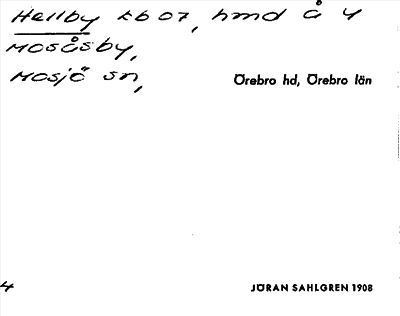 Hellby Eb 07, hmd å 4
Mosåsby,
Mosjö sn,
Örebro hd, Örebro län
4
JÖRAN SAHLGREN 1908